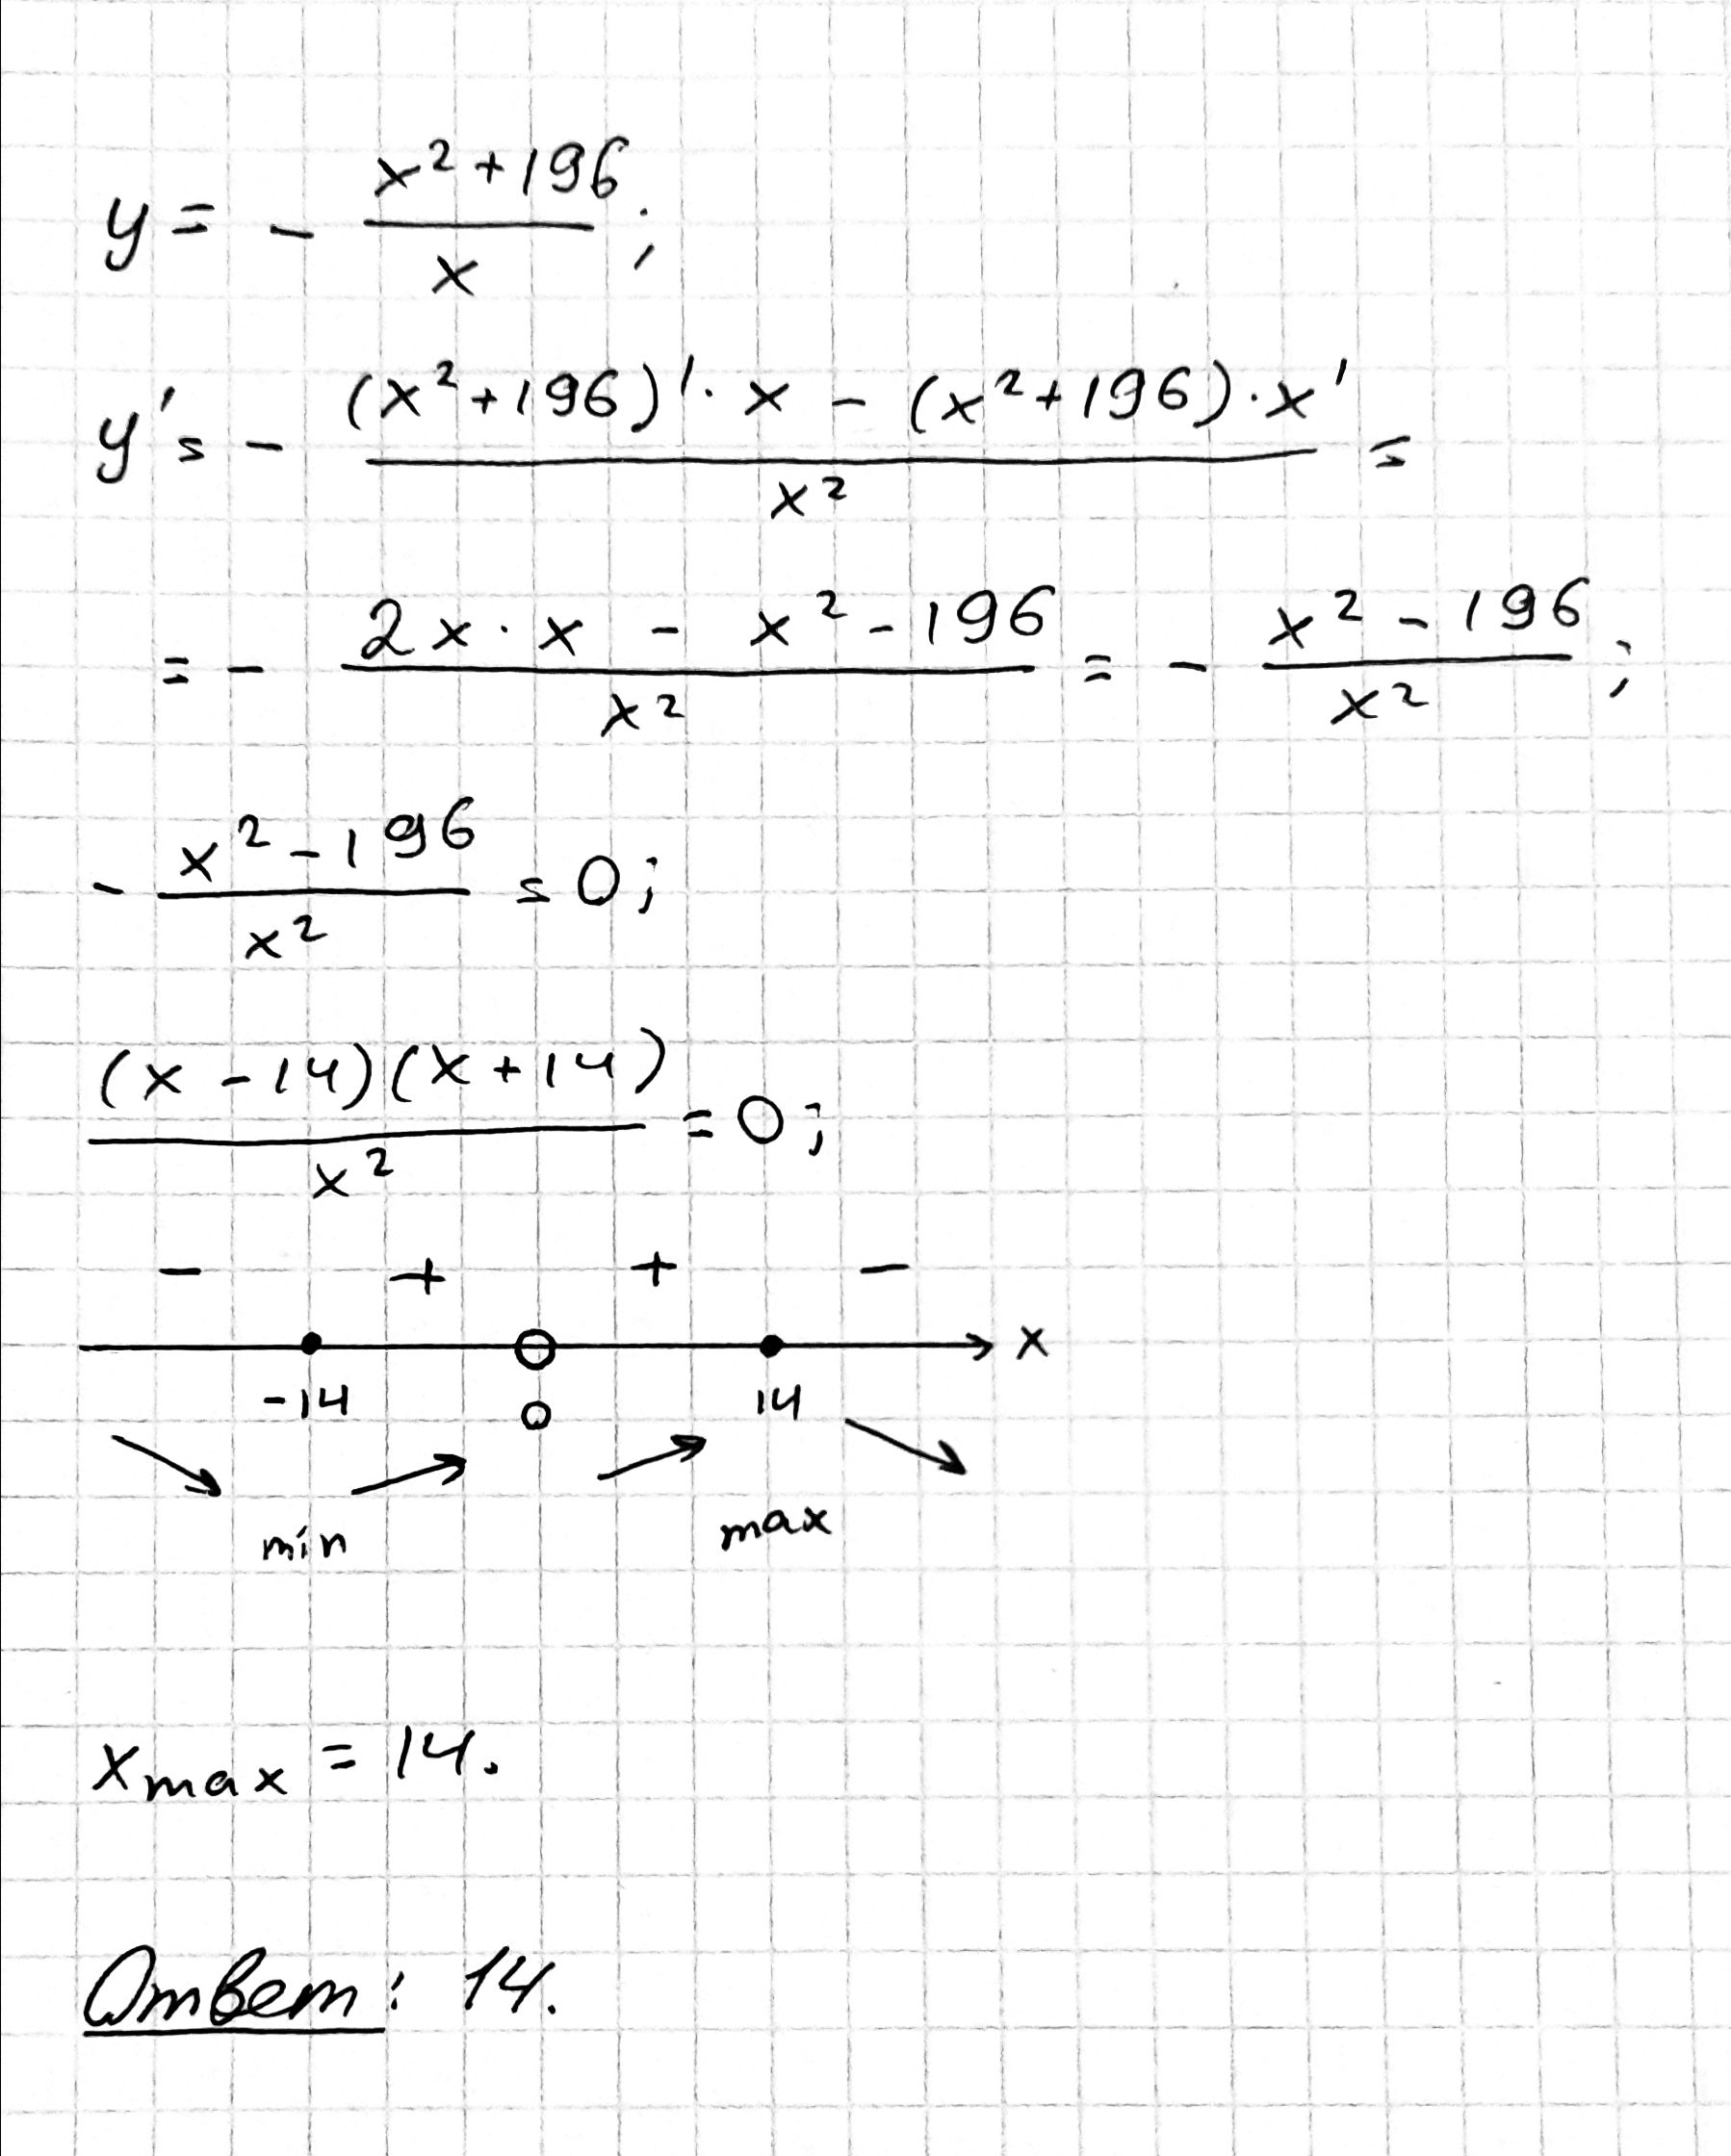 y = - (x² + 196) / x ;
y' = - ((x² + 196)' · x - (x² + 196) · x') / x² =
= - (2x · x - x² - 196) / x² = - (x² - 196) / x² ;
- (x² - 196) / x² = 0 ;
((x - 14)(x + 14)) / x² = 0 ;
- + + -
-14 0 14 x
min max
x max = 14.
Ответ: 14.